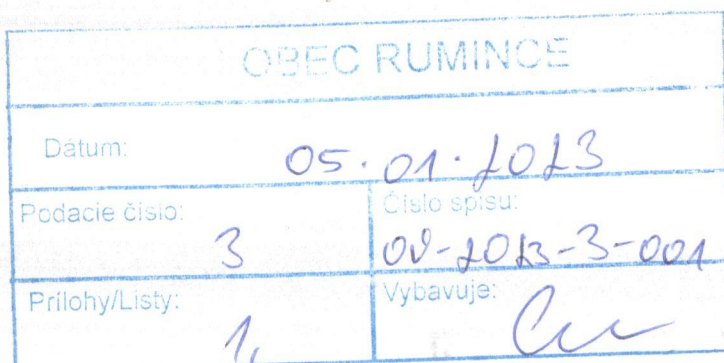 OBEC RUMINCE
Dátum: 05.01.2023
Podacie číslo: 3
Číslo spisu: OU-2023-3-001
Prílohy/Listy: 1,
Vybavuje: